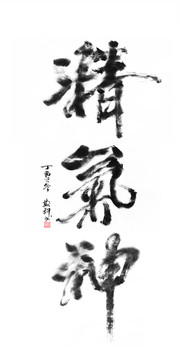 精氣神
丁酉冬